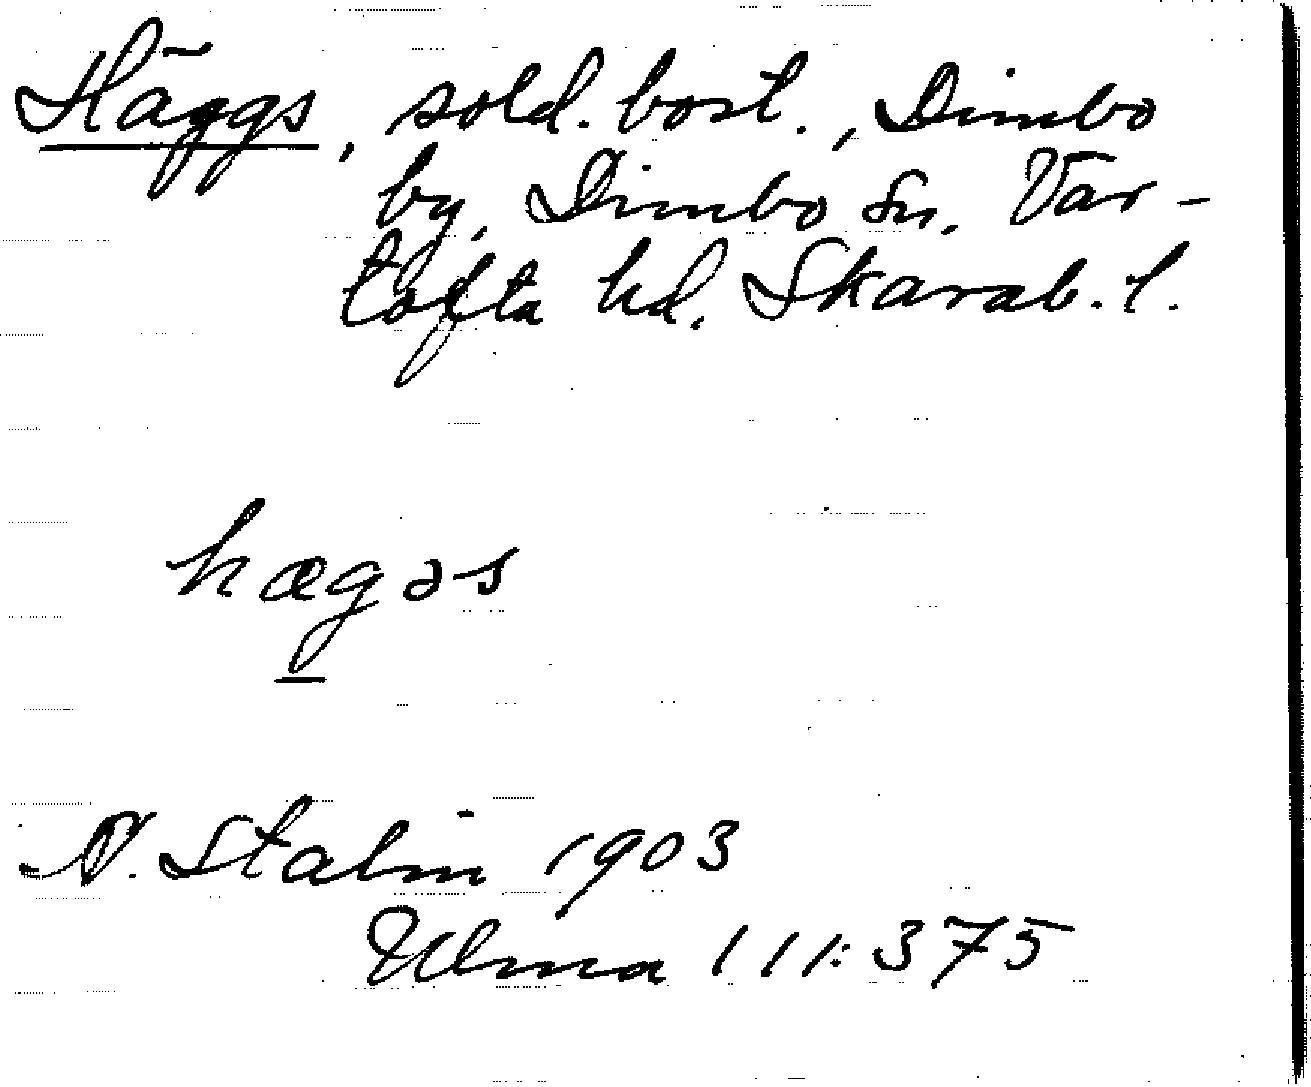 Häggs, sold. bost., Dimbo
by, Dimbo sn, Var-
tofta hd. Skarab. l.
hægəs
N. Stalin 1903
Ulma 111:375